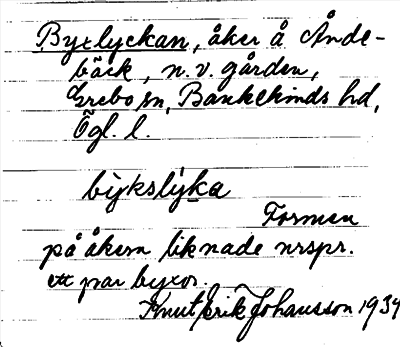 Byxlyckan, åker å Ånde-
bäck, n.v. gården,
Grebo sn, Bankekinds hd,
Ögl. l.
bỳkslỳka
Formen
på åkern liknade urspr.
ett par byxor.
Knut Erik Johansson 1934